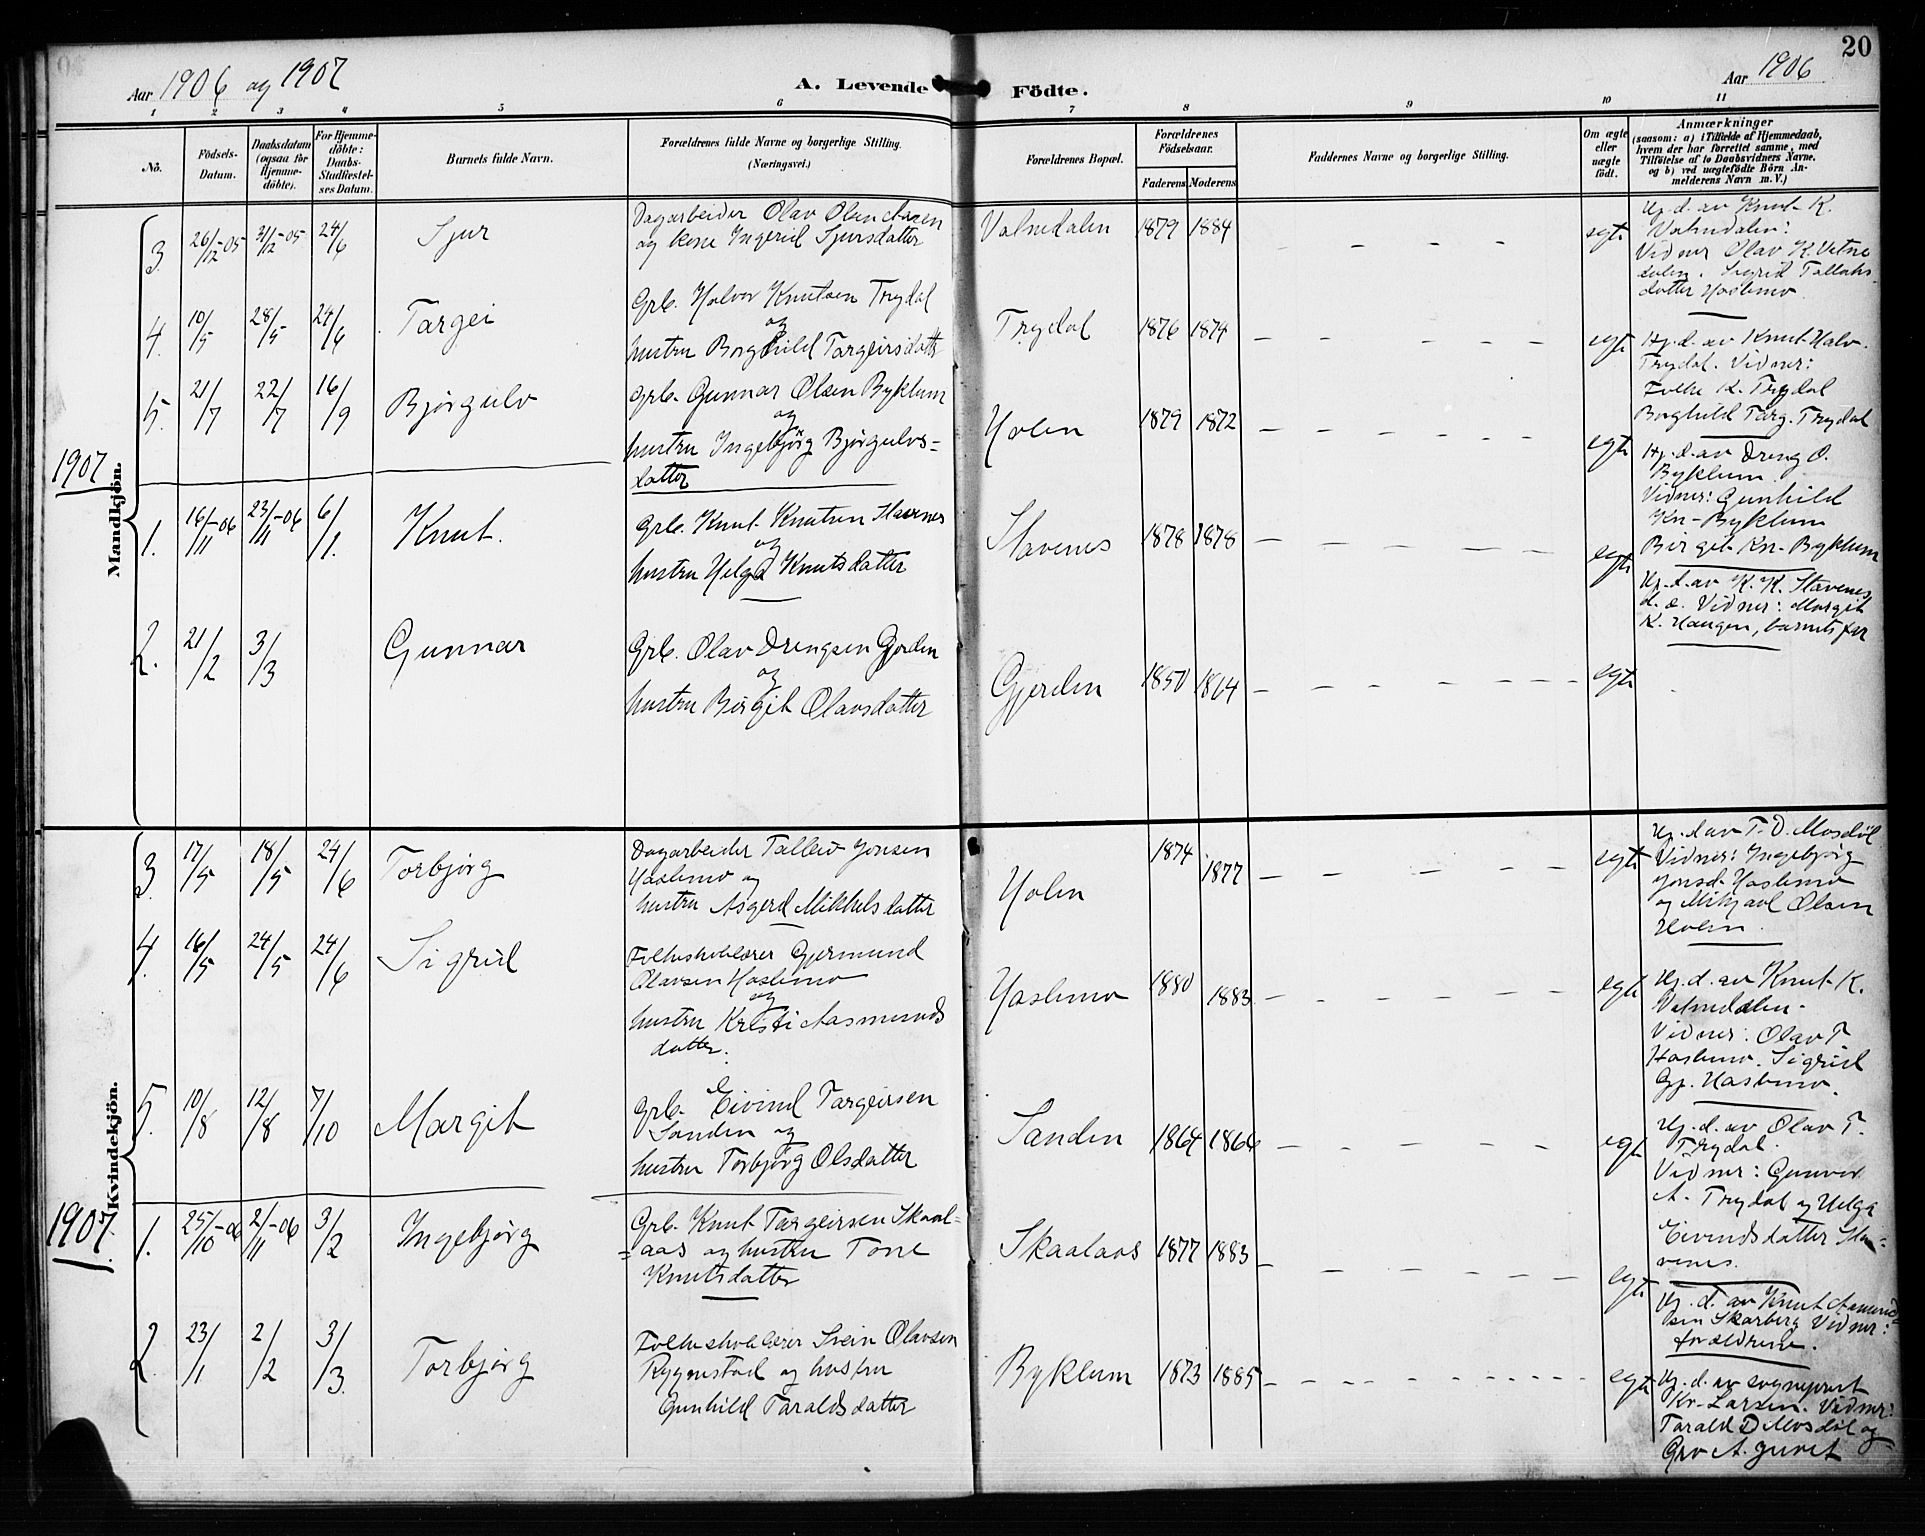 20
Aar 1906 og 1907
A. Levende Födte.
Aar 1906
1 2 3 4 5 6 7 8 9 10 11
No.
Födsels-
Datum.
Daabsdatum
(ogsaa for
Hjemme-
döbte).
For Hjemme-
döbte:
Daabs-
Stadfæstel-
ses Datum.
Barnets fulde Navn.
Forældrenes fulde Navne og borgerlige Stilling.
(Næringsvei.)
Forældrenes Bopæl.
Forældrenes
Födselsaar.
Faderens Moderens
Faddernes Navne og borgerlige Stilling.
Om ægte
eller
uægte
födt.
Anmærkninger
(saasom: a) i Tilfælde af Hjemmedaab,
hvem der har forrettet samme, med
Tilföielse af to Daabsvidners Navne.
og b) ved uægtefödte Börn An-
melderens Navn m. V.)
Mandkjön.
3. 26/12-05 31/12-05 24/6 Sjur
Dagarbeider Olav Olen Aasen
og kone Ingerid Sjursdatter
Valnedalen 1879 1884 egte
Hj.d. av Knut K.
Valnedalen:
Vidner Olav K. Vatne
dalen. Sigrid Tallaks
datter Haslemo
4. 10/5 28/5 24/6 Targei
Grb. Halvor Knutsen Trydal
og
hustru Borghild Targeirsdatter
Trydal 1876 1874 egte
Hj.d. av Knut Halv.
Trydal. Vidner:
Folke K. Trydal
Borghild Targ. Trydal
5. 21/7 22/7 16/9 Bjørgulv
Grb. Gunnar Olsen Byklum
og
hustru Ingebjörg Bjørgulvs-
datter
Holen 1879 1872 egte
Hj.d. av Dreng O.
Byklum.
Vidner: Gunhild
Kn- Byklum
Birgit Kn- Byklum
1907
1. 16/11-06 23/11-06 6/1. Knut.
Grb. Knut Knutsen Stavenes
og
hustru Helga Knutsdatter
Stavenes 1878 1878 egte
Hj.d. av K. K. Stavenes
d. e. Vidner: Margit
K. Haugen, barnets far
2. 21/2 3/3 Gunnar
Grb. Olav Drengsen Gjerden
og
hustru Birgit Olavsdatter
Gjerden 1850 1864 egte
Kvindekjön.
3. 17/5 18/5 24/6 Torbjørg
Dagarbeider Tallew Jonsen
Haslemo og
hustru Asgerd Mikkelsdatter
Holen 1874 1877 egte
Hj.d av T. D. Mosdøl
Vidner: Ingebjørg
Jonsd. Haslemo
og Mikjael Olsen
Holen.
4. 16/5 24/5 24/6 Sigrid
Folkeskolelærer Gjermund
Olavsen Haslemo
og
hustru Kristi Aasmunds
datter.
Haslemo 1880 1883 egte
Hj.d. av Knut K.
Valnedalen.
Vidner: Olav T.
Haslemo. Sigrid
Gj. Haslemo.
5. 10/8 12/8 7/10 Margit
Grb. Eivind Targeirsen
Sanden og
hustru Torbjørg Olsdatter
Sanden 1864 1866 egte
Hj.d. av Olav T.
Trydal.
Vidner: Gunver
A. Trydal og Helga
Eivindsdatter Sta=
venes.
1907.
1. 25/10-06 2/11-06 3/2 Ingebjørg
Grb. Knut Targeirsen Skaal=
=aas og hustru Tone
Knutsdatter
Skaalaas 1877 1883 egte
Hj.d. av Knut Aamund
sen Skarberg Vidner:
forældrene.
2. 23/1 2/2 3/3. Torbjørg
Folkeskolelærer Svein Olavsen
Rygnestad og hustru
Gunhild Taraldsdatter
Byklum 1873 1885 egte
Hj.d. av sogneprest
Kr. Larsen. Vidner:
Tarald D Mosdøl og
Gro A. Juvet